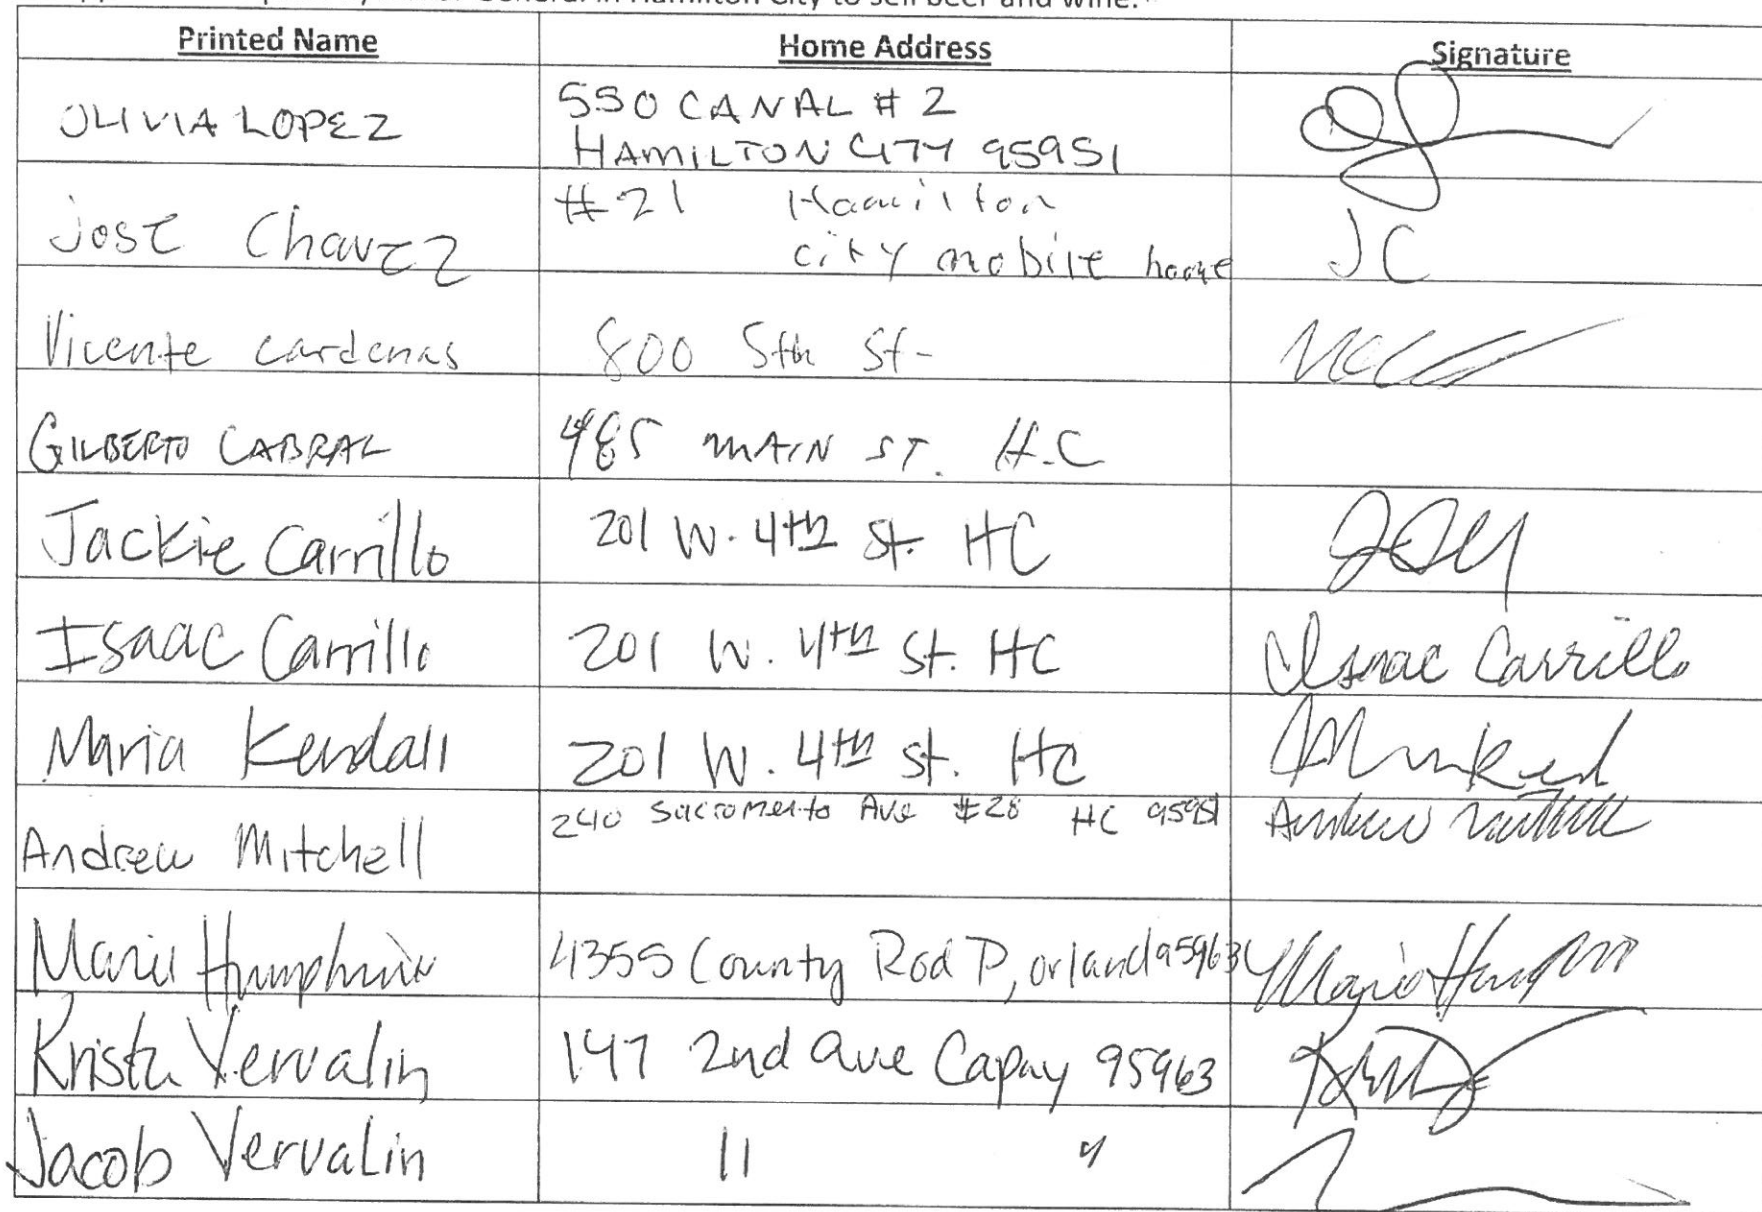 General in Hamilton City to sell beer and wine."
Printed Name Home Address Signature
OLIVIA LOPEZ 550 CANAL # 2
HAMILTON CITY 95951
Jose Chavez #21 Hamilton JC
city mobile home
Vicente cardenas 800 5th St-
GILBERTO CABRAL 485 MAIN ST. H.C
Jackie Carrillo 201 W. 4th St. HC
Isaac Carrillo 201 W. 4th St. HC Isaac Carrillo
Maria Kendall 201 W. 4th St. HC
240 Sacramento Ave #28 HC 95951 Andrew Mitchell
Andrew Mitchell
Marie 4355 County Rod P, orland 95963
Krista Vervalin 147 2nd ave Capay 95963
Jacob Vervalin 11 "